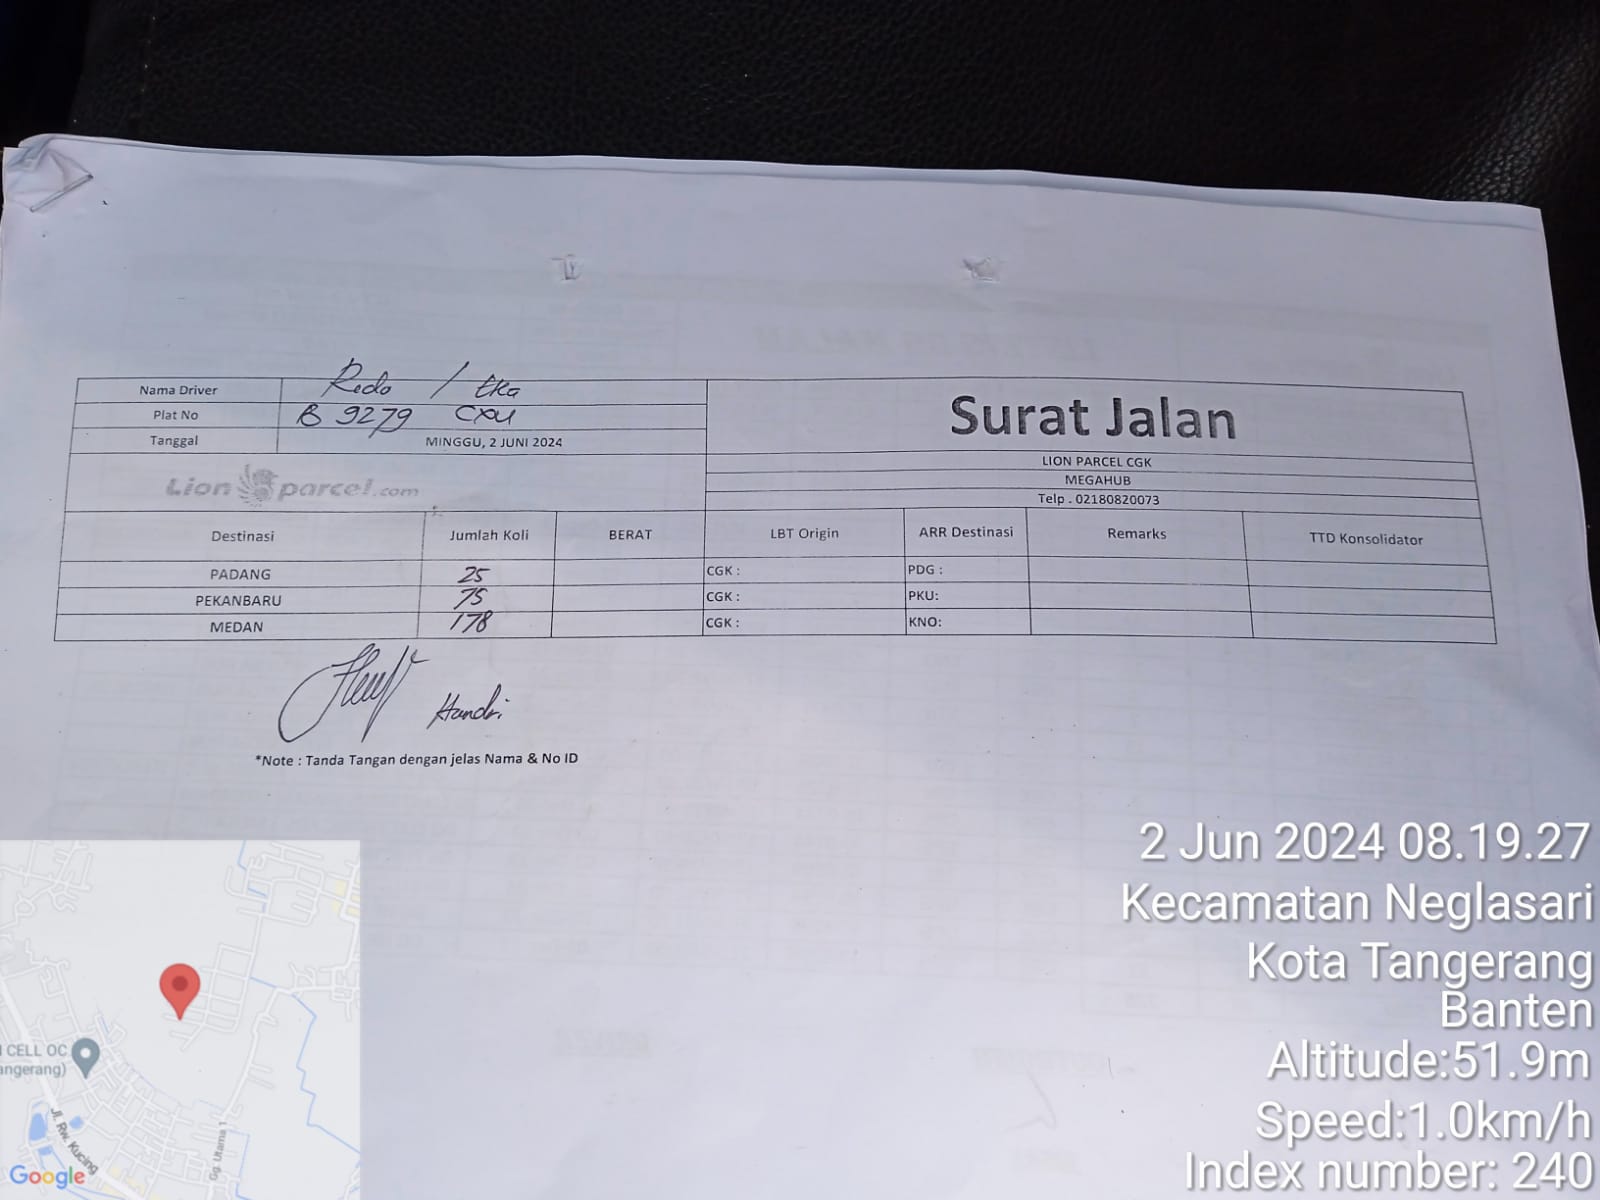 Nama Driver Redo / Eka
Plat No B 9279 CXU
Tanggal MINGGU, 2 JUNI 2024
Surat Jalan
LION PARCEL CGK
MEGAHUB
Telp . 02180820073
Lion parcel.com
Destinasi Jumlah Koli BERAT LBT Origin ARR Destinasi Remarks TTD Konsolidator
PADANG 25 CGK : PDG :
PEKANBARU 75 CGK : PKU:
MEDAN 178 CGK : KNO:
Handri
*Note : Tanda Tangan dengan jelas Nama & No ID
2 Jun 2024 08.19.27
Kecamatan Neglasari
Kota Tangerang
Banten
Altitude:51.9m
Speed:1.0km/h
Index number: 240
CELL OC
angerang)
Jl. Rw. Kucing
Gg. Utama 1
Google